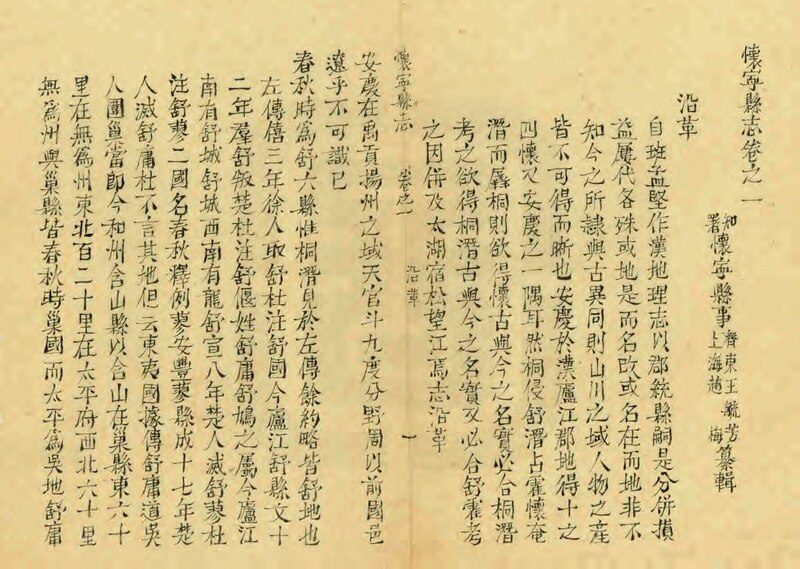 懷寧縣志卷之一
知懷寧縣事齊東王毓芳
署懷寧縣事上海趙梅纂輯
沿革
自班孟堅作漢地理志以郡統縣嗣是分併損
益屢代各殊或地是而名改或名在而地非不
知今之所隸與古異同則山川之域人物之產
皆不可得而晰也安慶於漢廬江郡地得十之
四懷又安慶之一隅耳然桐侵舒潛占霍懷奄
潛而羼桐則欲得懷古與今之名實必合桐潛
考之欲得桐潛古與今之名實又必合舒霍考
之因併及太湖宿松望江焉志沿革
懷寧縣志 卷之一 沿革 一
安慶在禹貢揚州之域天官斗九度分野周以前國邑
遼乎不可識已
春秋時為舒六縣惟桐潛見於左傳餘約略皆舒地也
左傳僖三年徐人取舒杜注舒國今廬江舒縣文十
二年羣舒叛楚杜注舒偃姓舒庸舒鳩之屬今廬江
南有舒城舒城西南有龍舒宣八年楚人滅舒蓼杜
注舒蓼二國名春秋釋例蓼安豐蓼縣成十七年楚
人滅舒庸杜不言其地但云東夷國據傳舒庸道吳
人圍巢當即今和州含山縣以含山在巢縣東六十
里在無為州東北百二十里在太平府西北六十里
無為州與巢縣皆春秋時巢國而太平為吳地舒庸